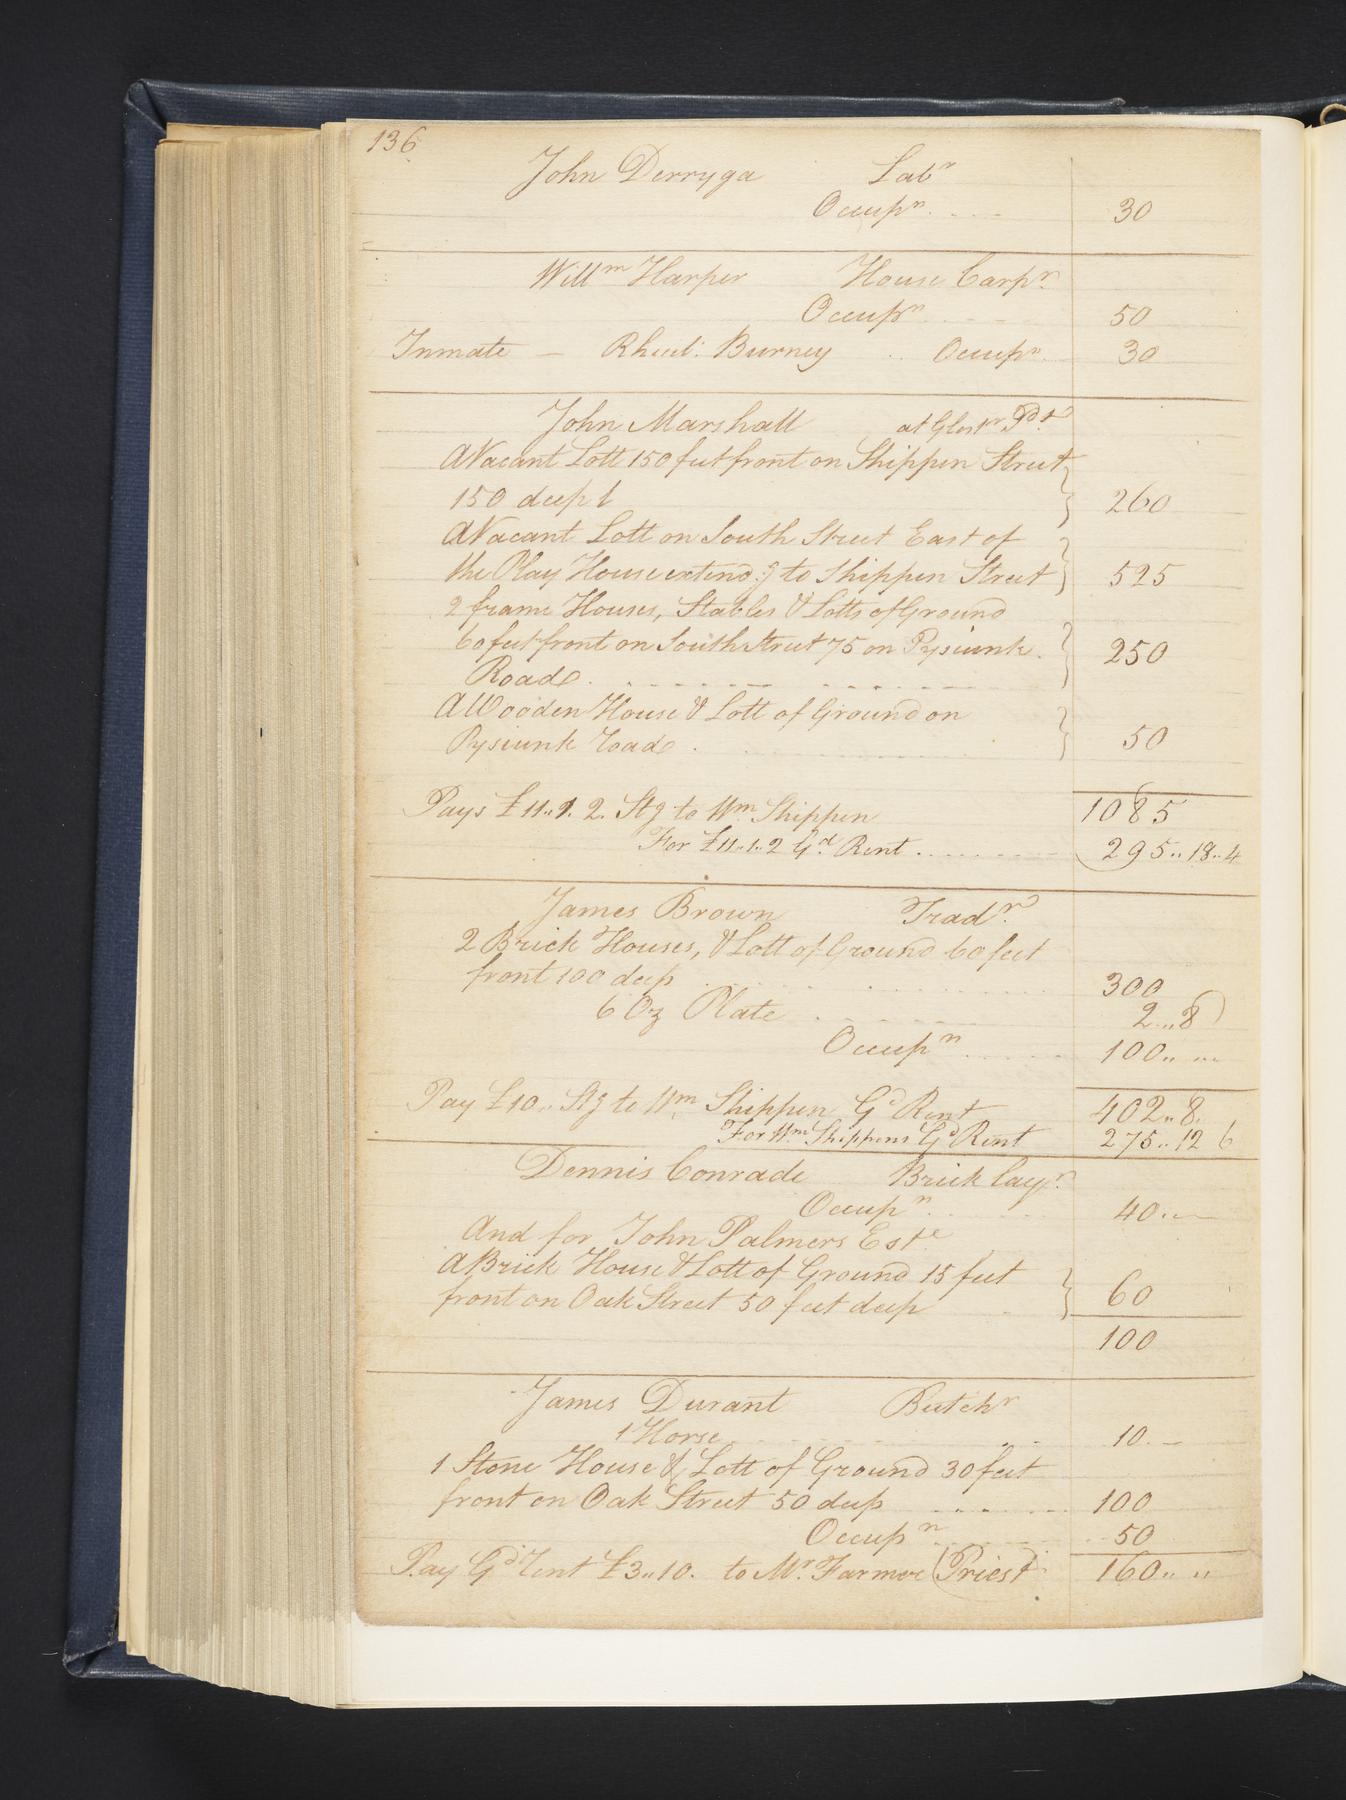 136
John Derryga Labr
Occupn. 30
Willm Harper House Carpr.
Occupn 50
Inmate — Rheub: Burney .. Occupn. 30
John Marshall at Glostr Pdt.
A Vacant Lott 150 feet front on Shippen Street
150 deep 260
A Vacant Lott on South Street East of
the Play House extend:g to Shippen Street 525
2 frame Houses, Stables & Lotts of Ground
60 feet front on South Street 75 on Pysiunk. 250
Road.
A Wooden House & Lott of Ground on
Pysiunk Road. 50
Pays £11..1. 2. Stg to Wm Shippen 1085
For £11..1..2 Gd. Rent. 295..18..4
James Brown Tradr.
2 Brick Houses, & Lott of Ground 60 feet
front 100 deep 300
6 Oz Plate 2...8
Occupn 100.. ...
Pay £10.. Stg to Wm Shippen Gd Rent 402..8.
For Wm Shippens Gd Rent 275..12 6
Dennis Conrade Brick layr.
Occupn. 40.—
And for John Palmers Este
A Brick House & Lott of Ground 15 feet
front on Oak Street 50 feet deep 60
100
James Durant Butchr
1 Horse 10.—
1 Stone House & Lott of Ground 30 feet
front on Oak Street 50 deep 100
Occupn 50
Pay Gd Rent £3..10. to Mr. Farmer (Priest) 160.. ..